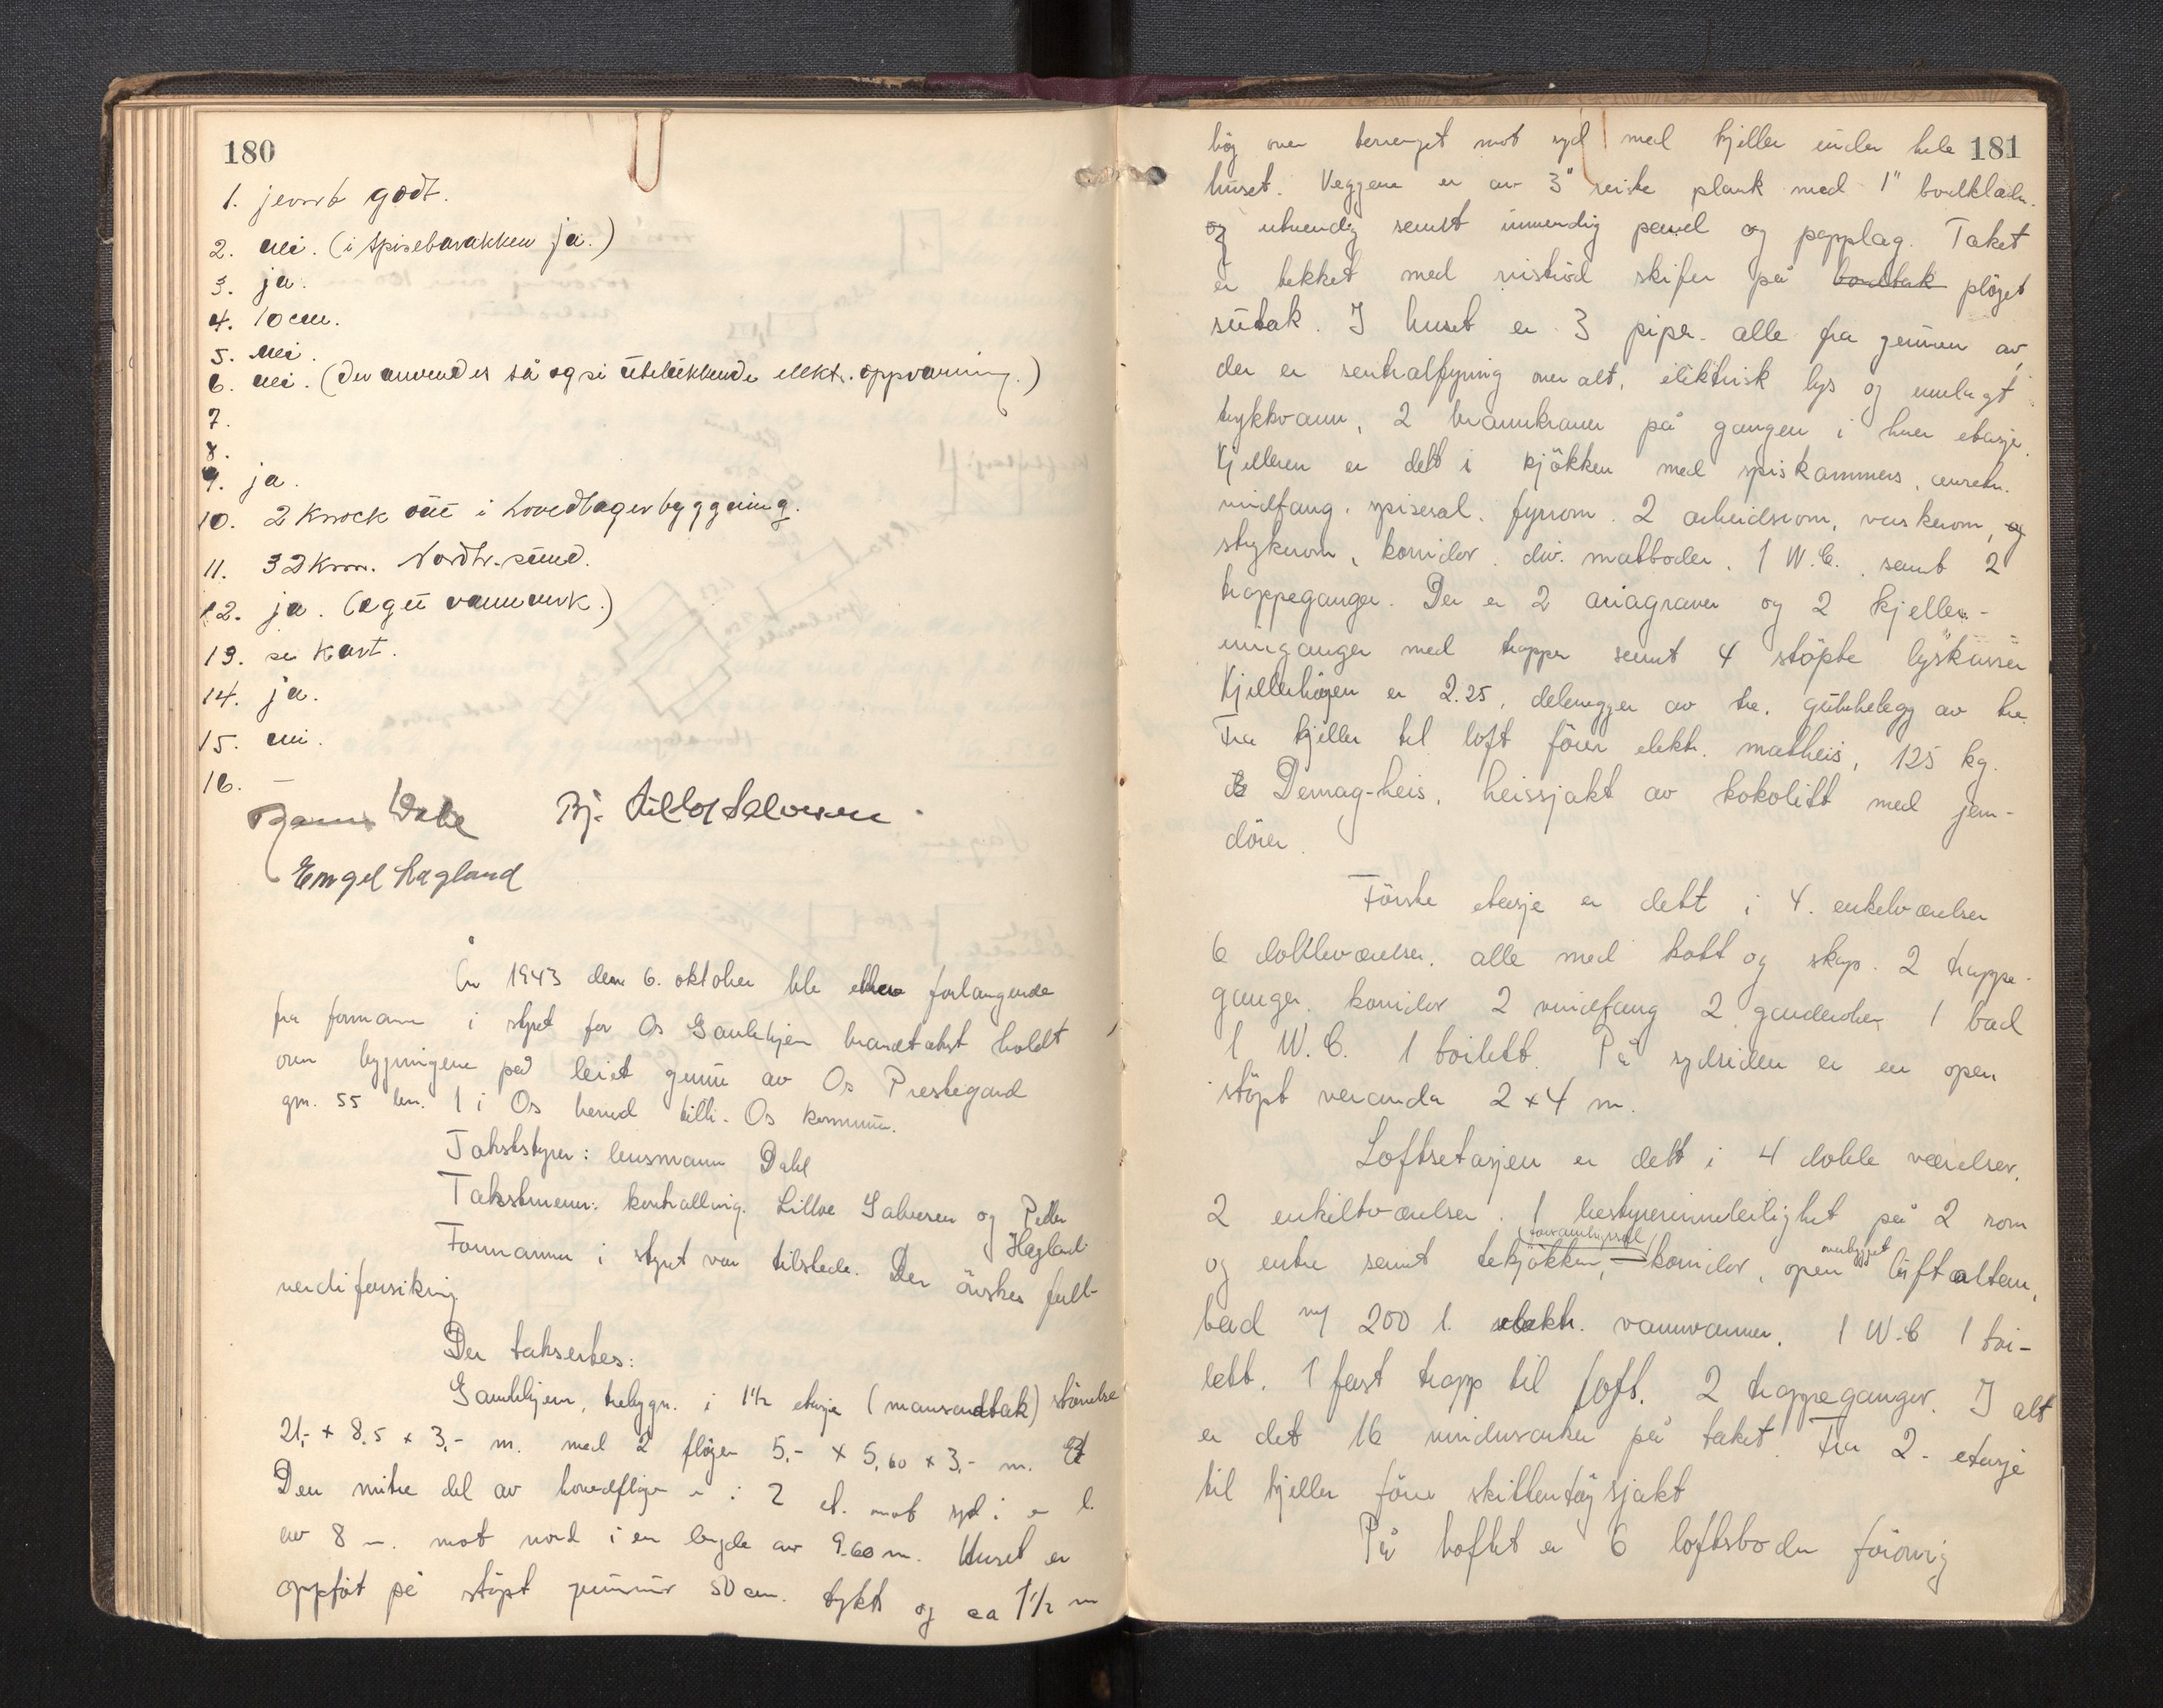 180
1. jevnt godt.
2. nei. (i spisebarakken ja.)
3. ja.
4. 10 cm.
5. nei.
6. nei. (der anvendes så og si utelukkende elektr. oppvarming.)
7.
8.
9. ja.
10. 2 Knock out i hovedlagerbyggning.
11. 32 Km. Nordtr. sund.
12. ja. (eget vannverk.)
13. se kart.
14. ja.
15. nei.
16. —
Dahl Bj. Lilloe Salvesen
Engel Hagland
År 1943 den 6. oktober ble etter forlangende
fra formann i styret for Os Gamlehjem branntakst holdt
over bygningene på leiet grunn av Os Prestegard
gnr. 55 bnr. 1 i Os herred tilh. Os kommune.
Takststyrer: lensmann Dahl
Takstmenn: kontrolling. Lilloe Salvesen og Peder
Hagland.
Formannen i styret var tilstede. Der ønskes full-
verdiforsikring
Der takseres:
Gamlehjem, trebygn. i 1½ etasje (mansardtak) størrelse
21,- x 8.5 x 3,- m. med 2 fløyer 5,- x 5,60 x 3,- m.
Den mitre del av hovedfløyen er i 2 et. mot syd i en l.
av 8 m. mot nord i en lengde av 9.60 m. Huset er
oppført på støpt grunnmur 50 cm. tykt og ca 1½ m
181
høy over terrenget mot syd med kjeller under hele
huset. Veggene er av 3" reiste plank med 1" bordkledn.
og utvendig samt innvendig panel og papplag. Taket
er tekket med skifer på bordtak pløyet
sutak. I huset er 3 piper alle fra grunnen av,
der er sentralfyring over alt, elektrisk lys og innlagt
trykkvann, 2 brannkraner på gangen i hver etasje.
Kjelleren er delt i kjøkken med spiskammers, anretn.
vindfang, spisesal, fyrrom, 2 arbeidsrom, vaskerom, og
strykerom, korridor, div. matboder, 1 W.C., samt 2
trappeganger. Der er 2 ariagraver og 2 kjeller-
innganger med trapper samt 4 støpte lyskasser
Kjellerhøyden er 2.25, delevegger av tre, gulvbelegg av tre.
Fra kjeller til loft fører elektr. matheis, 125 kg.
Demag-heis, heissjakt av kokolitt med jern-
dører.
Første etasje er delt i 4. enkeltværelser
6 dobbeltværelser, alle med kott og skap. 2 trappe-
ganger, korridor 2 vindfang 2 garderober 1 bad
1 W.C. 1 toilett. På sydsiden er en open
støpt veranda 2 x 4 m.
Loftsetasjen er delt i 4 doble værelser,
2 enkeltværelser, 1 bestyrerinneleilighet på 2 rom
(forsamlingssal) overbygget
og entre samt tekjøkken, — korridor, open luftaltan,
bad m/ 200 l. elektr. vannvarmer. 1 W.C 1 toi-
lett. 1 fast trapp til loft. 2 trappeganger. I alt
er det 16 vindusarker på taket. Fra 2. etasje
til kjeller fører skittentøysjakt
På loftet er 6 loftsboder forøvrig